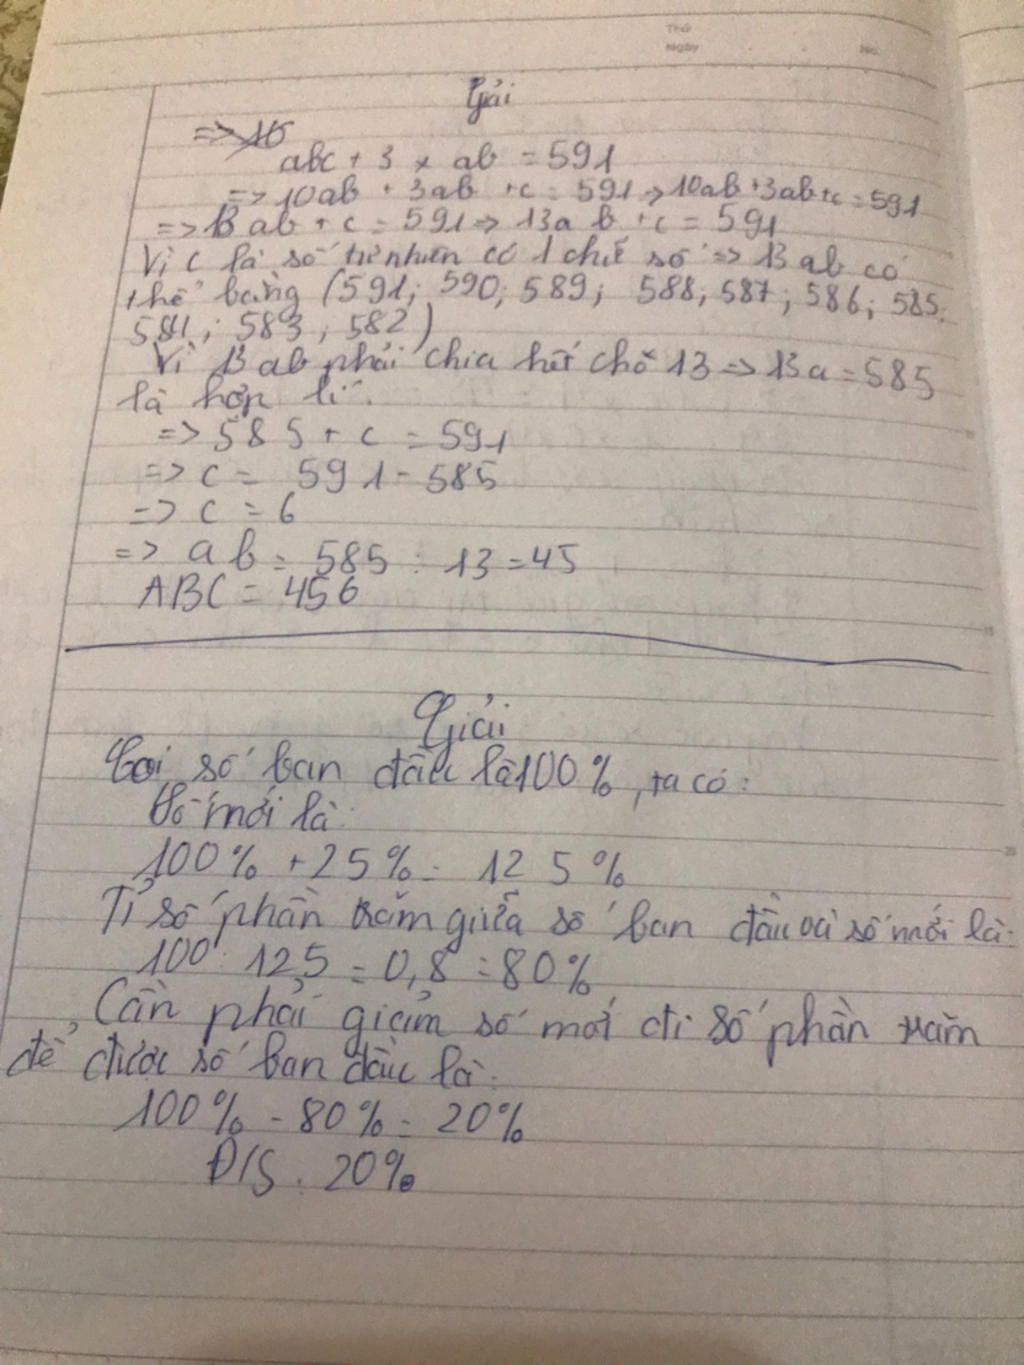 Thứ
Ngày No.
Giải
=> 10
abc + 3 x ab = 591
=> 10ab + 3ab + c = 591 => 10ab + 3ab + c = 591
=> 13 ab + c = 591 => 13a b + c = 591
Vì c là số tự nhiên có 1 chữ số => 13 ab có
thể bằng (591; 590; 589; 588; 587; 586; 585;
584; 583; 582)
Vì 13 ab phải chia hết chỗ 13 => 13a = 585
là hợp lí.
=> 585 + c = 591
=> c = 591 - 585
=> c = 6
=> ab = 585 : 13 = 45
ABC = 456
Giải
Coi số ban đầu là 100%, ta có:
Số mới là:
100% + 25% = 125%
Tỉ số phần trăm giữa số ban đầu và số mới là:
100 : 125 = 0,8 = 80%
Cần phải giảm số mới đi số phần trăm
để được số ban đầu là:
100% - 80% = 20%
Đ/S : 20%